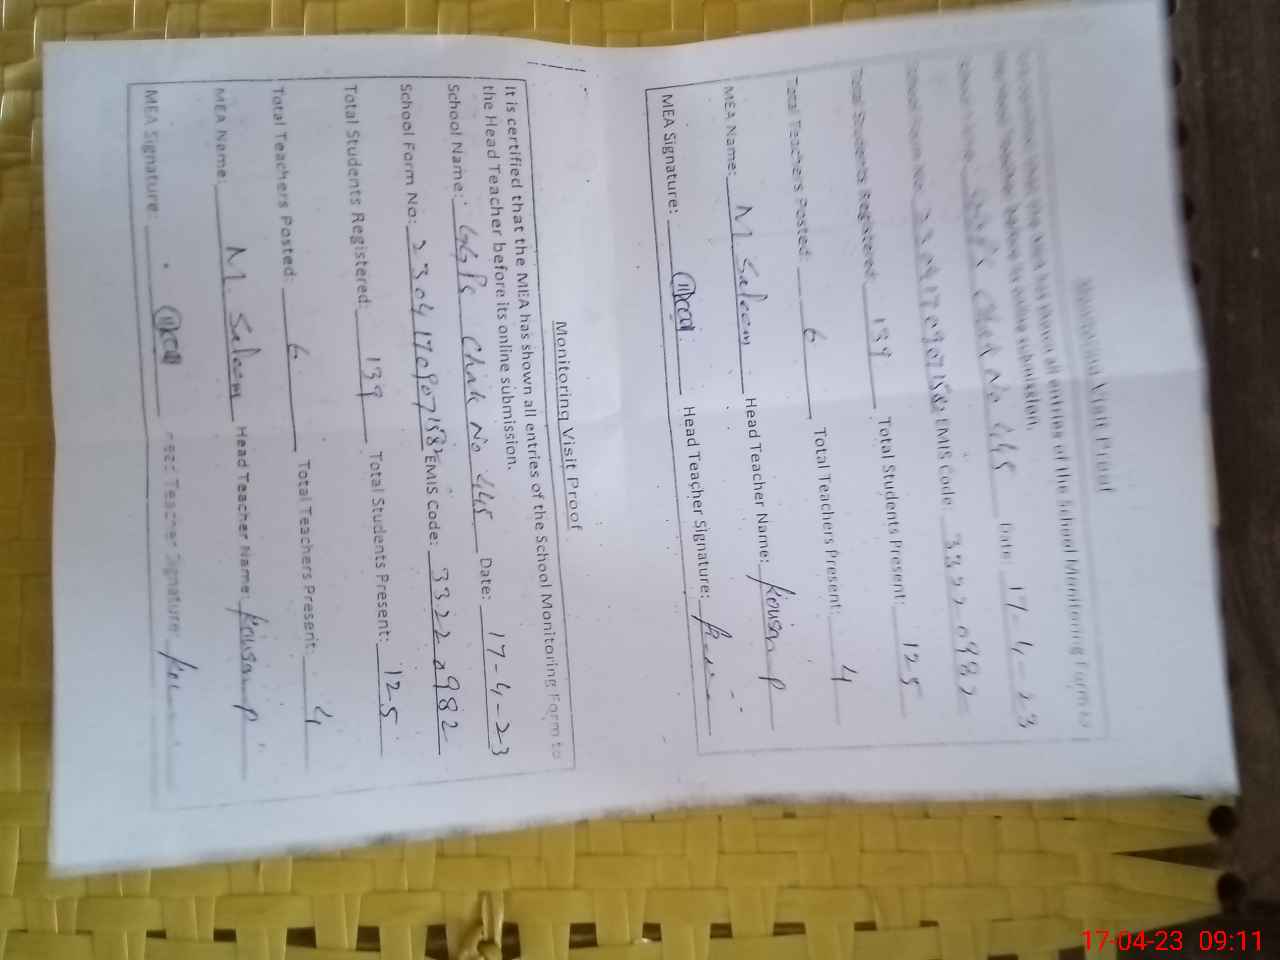 Monitoring Visit Proof
It is certified that the MEA has shown all entries of the School Monitoring Form to
the Head Teacher before its online submission.
School Name: GGPS Chak No 445 Date: 17-4-23
School Form No: 23041709071582 EMIS Code: 33220982
Total Students Registered: 139 Total Students Present: 125
Total Teachers Posted: 6 Total Teachers Present: 4
MEA Name: M Saleem Head Teacher Name: Kousar P
MEA Signature: Head Teacher Signature:
Monitoring Visit Proof
It is certified that the MEA has shown all entries of the School Monitoring Form to
the Head Teacher before its online submission.
School Name: GGPS Chak No 445 Date: 17-4-23
School Form No: 23041709071582 EMIS Code: 33220982
Total Students Registered: 139 Total Students Present: 125
Total Teachers Posted: 6 Total Teachers Present: 4
MEA Name: M. Saleem Head Teacher Name: Kousar P
MEA Signature: Head Teacher Signature:
17-04-23 09:11